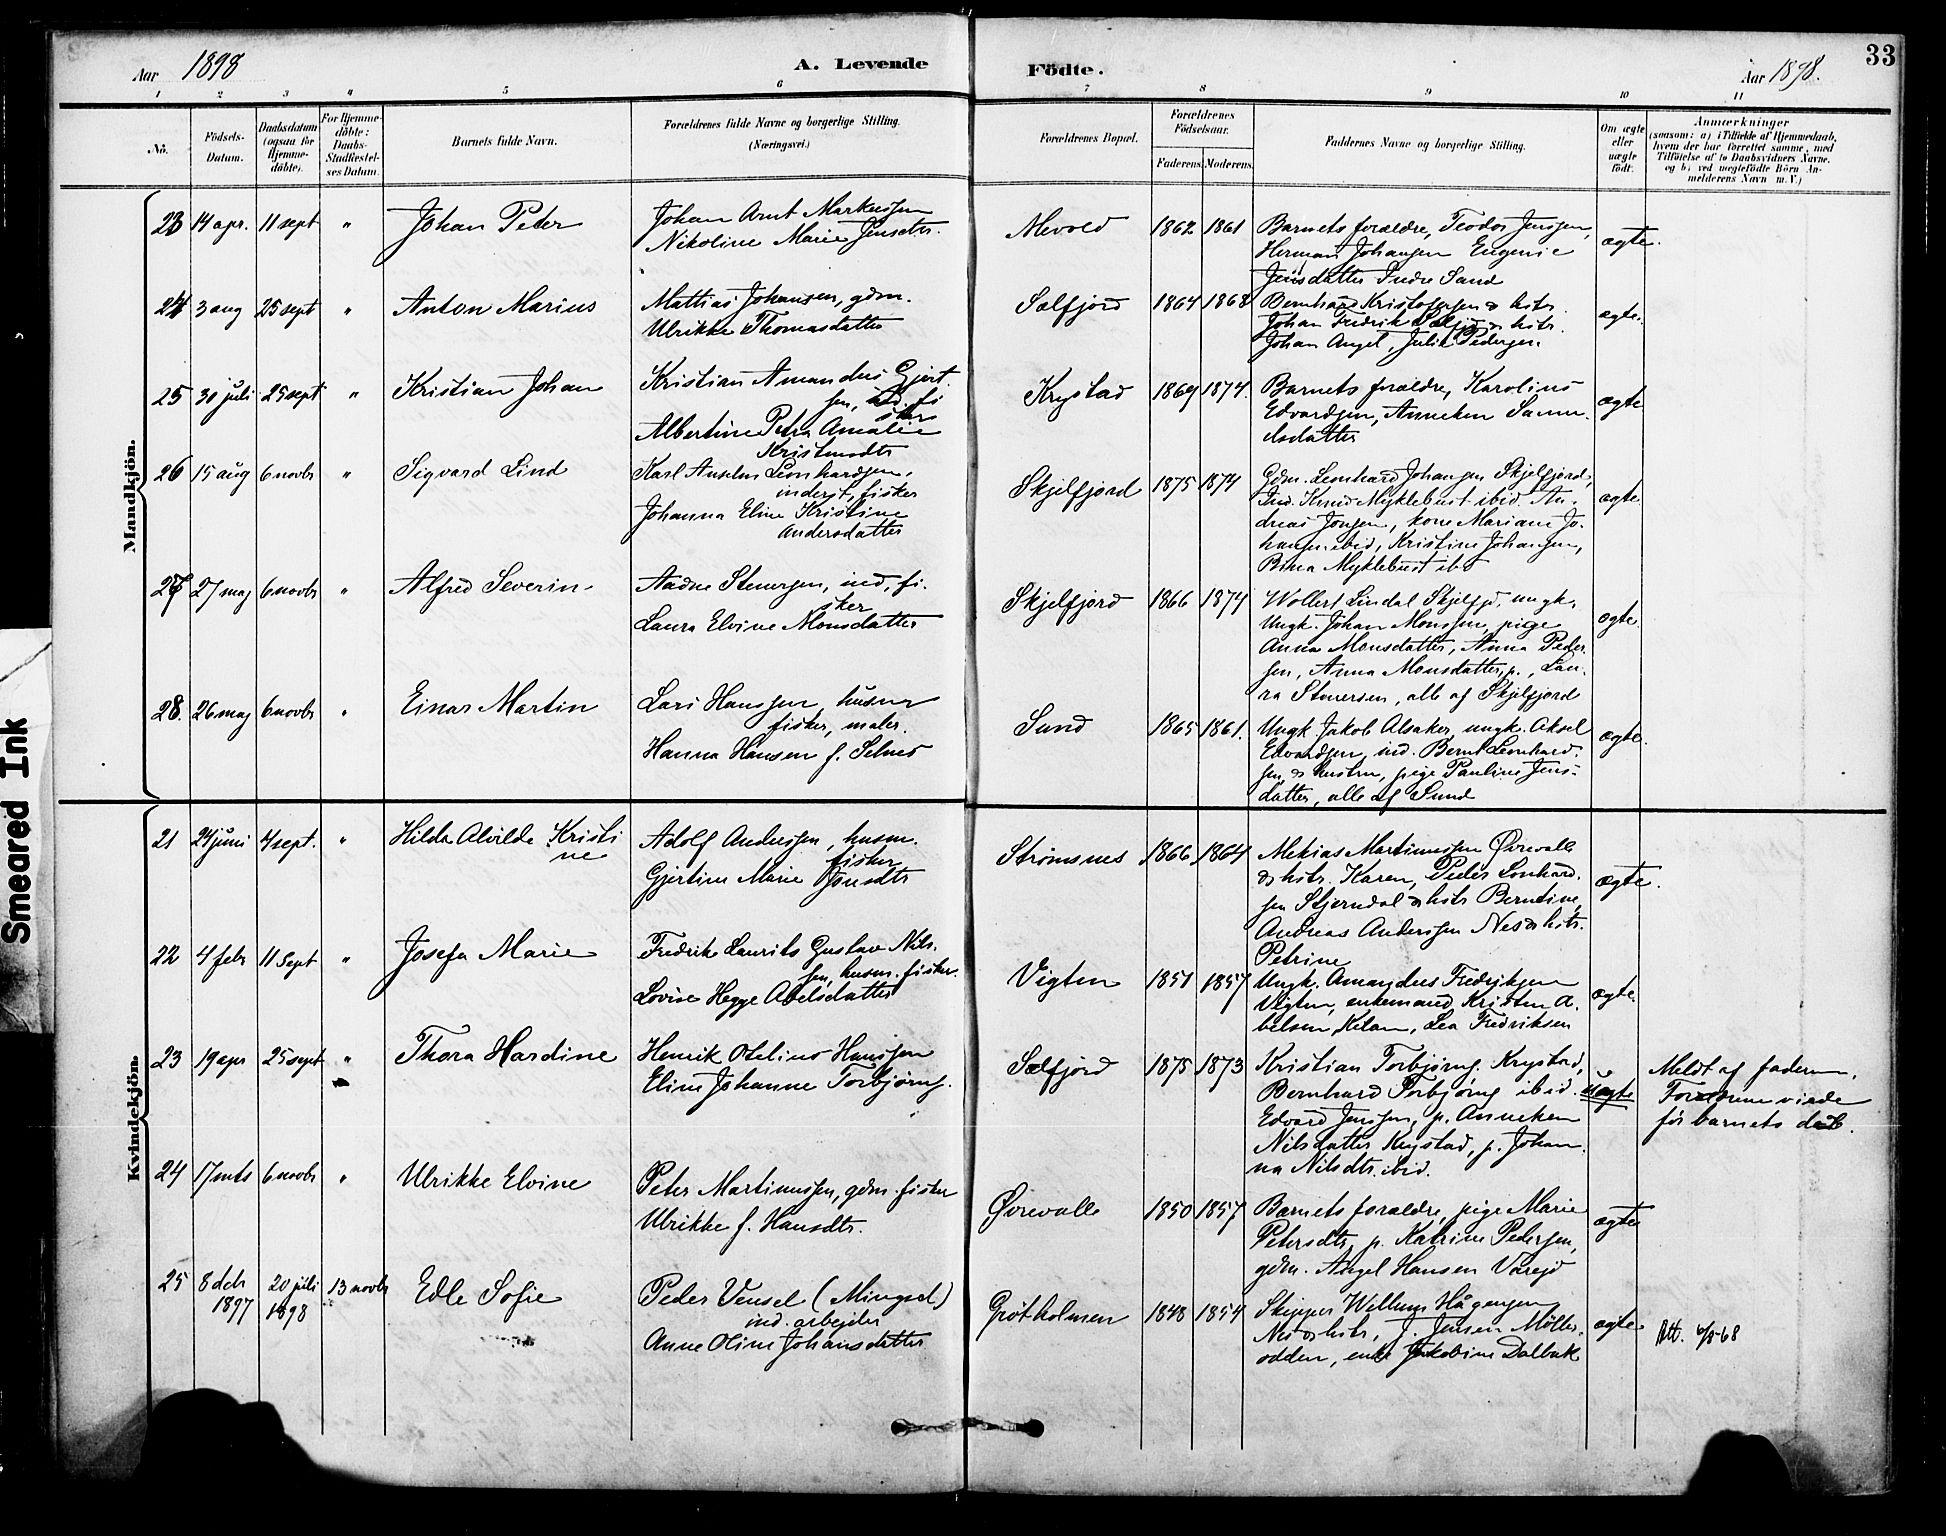 33
Aar 1898
A. Levende
Födte.
Aar 1898.
1 2 3 4 5 6 7 8 9 10 11
No.
Födsels-
Datum.
Daabsdatum
(ogsaa for
Hjemme-
döbte).
For Hjemme-
döbte:
Daabs-
Stadfæstel-
ses Datum.
Barnets fulde Navn.
Forældrenes fulde Navne og borgerlige Stilling.
(Næringsvei.)
Forældrenes Bopæl.
Forældrenes
Födselsaar.
Faderens. Moderens.
Faddernes Navne og borgerlige Stilling.
Om ægte
eller
uægte
födt.
Anmærkninger
(saasom: a) i Tilfælde af Hjemmedaab,
hvem der har forrettet samme, med
Tilföielse af to Daabsvidners Navne,
og b) ved uægtefödte Börn An-
melderens Navn m. V.)
Mandkjön.
23 14 apr. 11 sept " Johan Peter
Johan Arnt Markussen
Nikoline Marie Jensdtr.
Mevold 1862 1861
Barnets forældre, Teodor Jenssen,
Herman Johansen Eugenie
Jensdatter Indre Sand
ægte.
24 3 aug 25 sept " Anton Marius
Mattias Johansen, gdm.
Ulrikke Thomasdatter
Selfjord 1864 1868
Bernhard Kristofersen & hstr.
Johan Fredrik Selfjo & hstr.
Johan Angel, Julie Pedersen.
ægte.
25 30 juli 25 sept " Kristian Johan
Kristian Amandus Gjert
sen, ind. fi
sker
Albertine Petra Amalie
Kristensdtr
Krystad 1869 1874.
Barnets forældre, Karolius
Edvardsen, Anneken Samu-
elsdatter
ægte
26 15 aug 6 novbr " Sigvard Lind
Karl Anselm Leonhardsen,
inderst, fisker
Johanna Eline Kristine
Andersdatter
Skjelfjord 1875 1874
Gdm. Leonhard Johansen Skjelfjord,
Ind. Knud Myklebust ibid. An-
dreas Jonsen, kone Mariane Jo-
hansen ibid, Kristine Johansen,
Bina Myklebust ibd
ægte.
27 27 maj 6 novbr " Alfred Severin
Aadne Stenersen, ind, fi-
sker
Laura Elvine Monsdatter
Skjelfjord 1866 1874
Wollert Lindal Skjelfjd, ungk,
Ungk. Johan Monssen, pige
Anna Monsdatter, Anna Peder-
sen, Anna Monsdatter, p., Lau-
ra Stenersen, alle af Skjelfjord
ægte.
28. 26 maj 6 novbr " Einar Martin
Lars Hanssen, husm
fisker, maler.
Hanna Hansen f. Selnes
Sund 1865 1861.
Ungk Jakob Alsaker, ungk. Aksel
Edvardsen, ind. Bernt Leonhard-
sen & hustru, pige Pauline Jens-
datter, alle af Sund
ægte.
Kvindekjön.
21 24 juni 4 sept. " Hilda Alvilde Kristi
ne
Adolf Anderssen, husm.
fisker
Gjertine Marie Jonsdtr
Strømsnes 1866 1864
Mekias Martinussen Øvrevolle
& hstr. Karen, Peder Lonhard-
sen Stjerndal & hstr Berntine,
Andreas Anderssen Nes & hstr.
Petrine
ægte.
22 4 febr 11 sept " Josefa Marie
Fredrik Laurits Gustav Nils-
sen, husm. fisker.
Lovise Hegge Abelsdatter
Vigten 1851 1857
Ungk. Amandus Fredriksen
Vigten, enkemand Kristen A-
belsen Kilan, Lea Fredriksen
ægte.
23 19 apr 25 sept " Thora Hardine
Henrik Otelius Hanssen
Eline Johanne Torbjørns.
Selfjord 1875 1873
Kristian Torbjørns. Krystad,
Bernhard Torbjørns ibid.
Edvard Jenssen, p. Anneken
Nilsdatter Krystad, p. Johan-
na Nilsdtr. ibid.
uægte
Meldt af faderen.
Foreldrene viede
før barnets daab.
24 17 mts 6 novbr " Ulrikke Elvine
Peter Martinussen, gdm. fisker
Ulrikke f. Hansdtr.
Øvrevolle 1850 1857
Barnets forældre, pige Marie
Petersdtr, p. Katrine Pedersen,
gdm. Angel Hansen Varejd
ægte
25 8 debr
1897 20 juli
1898 13 novbr Edle Sofie
Peder Vensel (Mingsel)
ind. arbejder
Anne Oline Johansdatter
Grøtholmen 1848 1854
Skipper Wellum Hågensen
Nes & hstr, J. Jensen Møller-
odden, enke Jakobine Dalbak
ægte
Att. 6/8-68
Smeared Ink